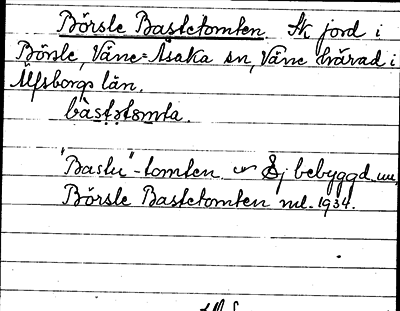 Börsle Bastetomten. Åk jord i
Börsle, Väne-Åsaka sn, Väne härad i
Älfsborgs län.
bàstətɷmta.
"Bastu"-tomten. Ej bebyggd nu.
Börsle Bastetomten ml. 1934.